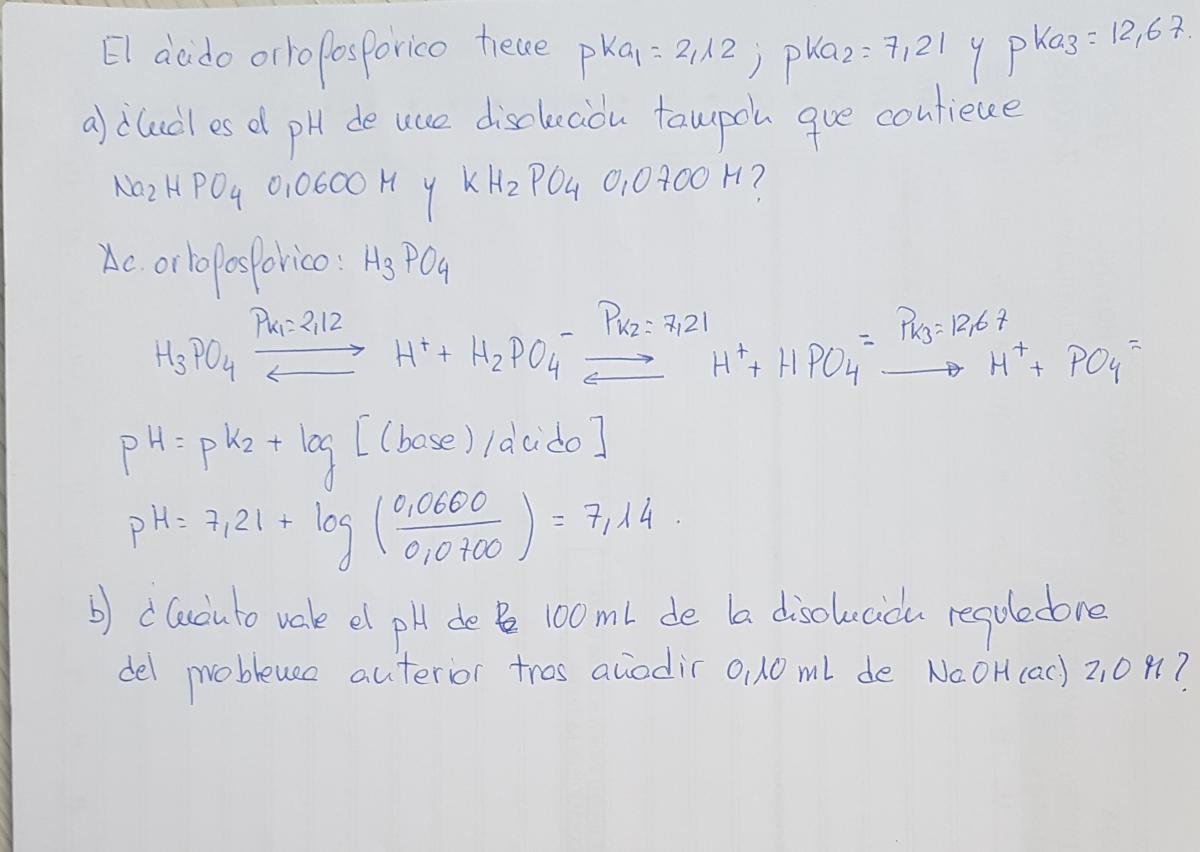 El ácido ortofosfórico tiene pka₁ = 2,12 ; pka₂ = 7,21 y pka₃ = 12,67.
a) ¿Cuál es el pH de una disolución tampón que contiene
Na₂HPO₄ 0,0600 M y KH₂PO₄ 0,0700 M?
Ac. ortofosfórico: H₃PO₄
H₃PO₄ ⇌ (Pk₁=2,12) H⁺ + H₂PO₄⁻ ⇌ (Pk₂=7,21) H⁺ + HPO₄⁼ → (Pk₃=12,67) H⁺ + PO₄⁼
pH = pk₂ + log [(base)/ácido]
pH = 7,21 + log (0,0600 / 0,0700) = 7,14 .
b) ¿Cuánto vale el pH de 100 mL de la disolución reguladora
del problema anterior tras añadir 0,10 mL de NaOH (ac.) 2,0 M?